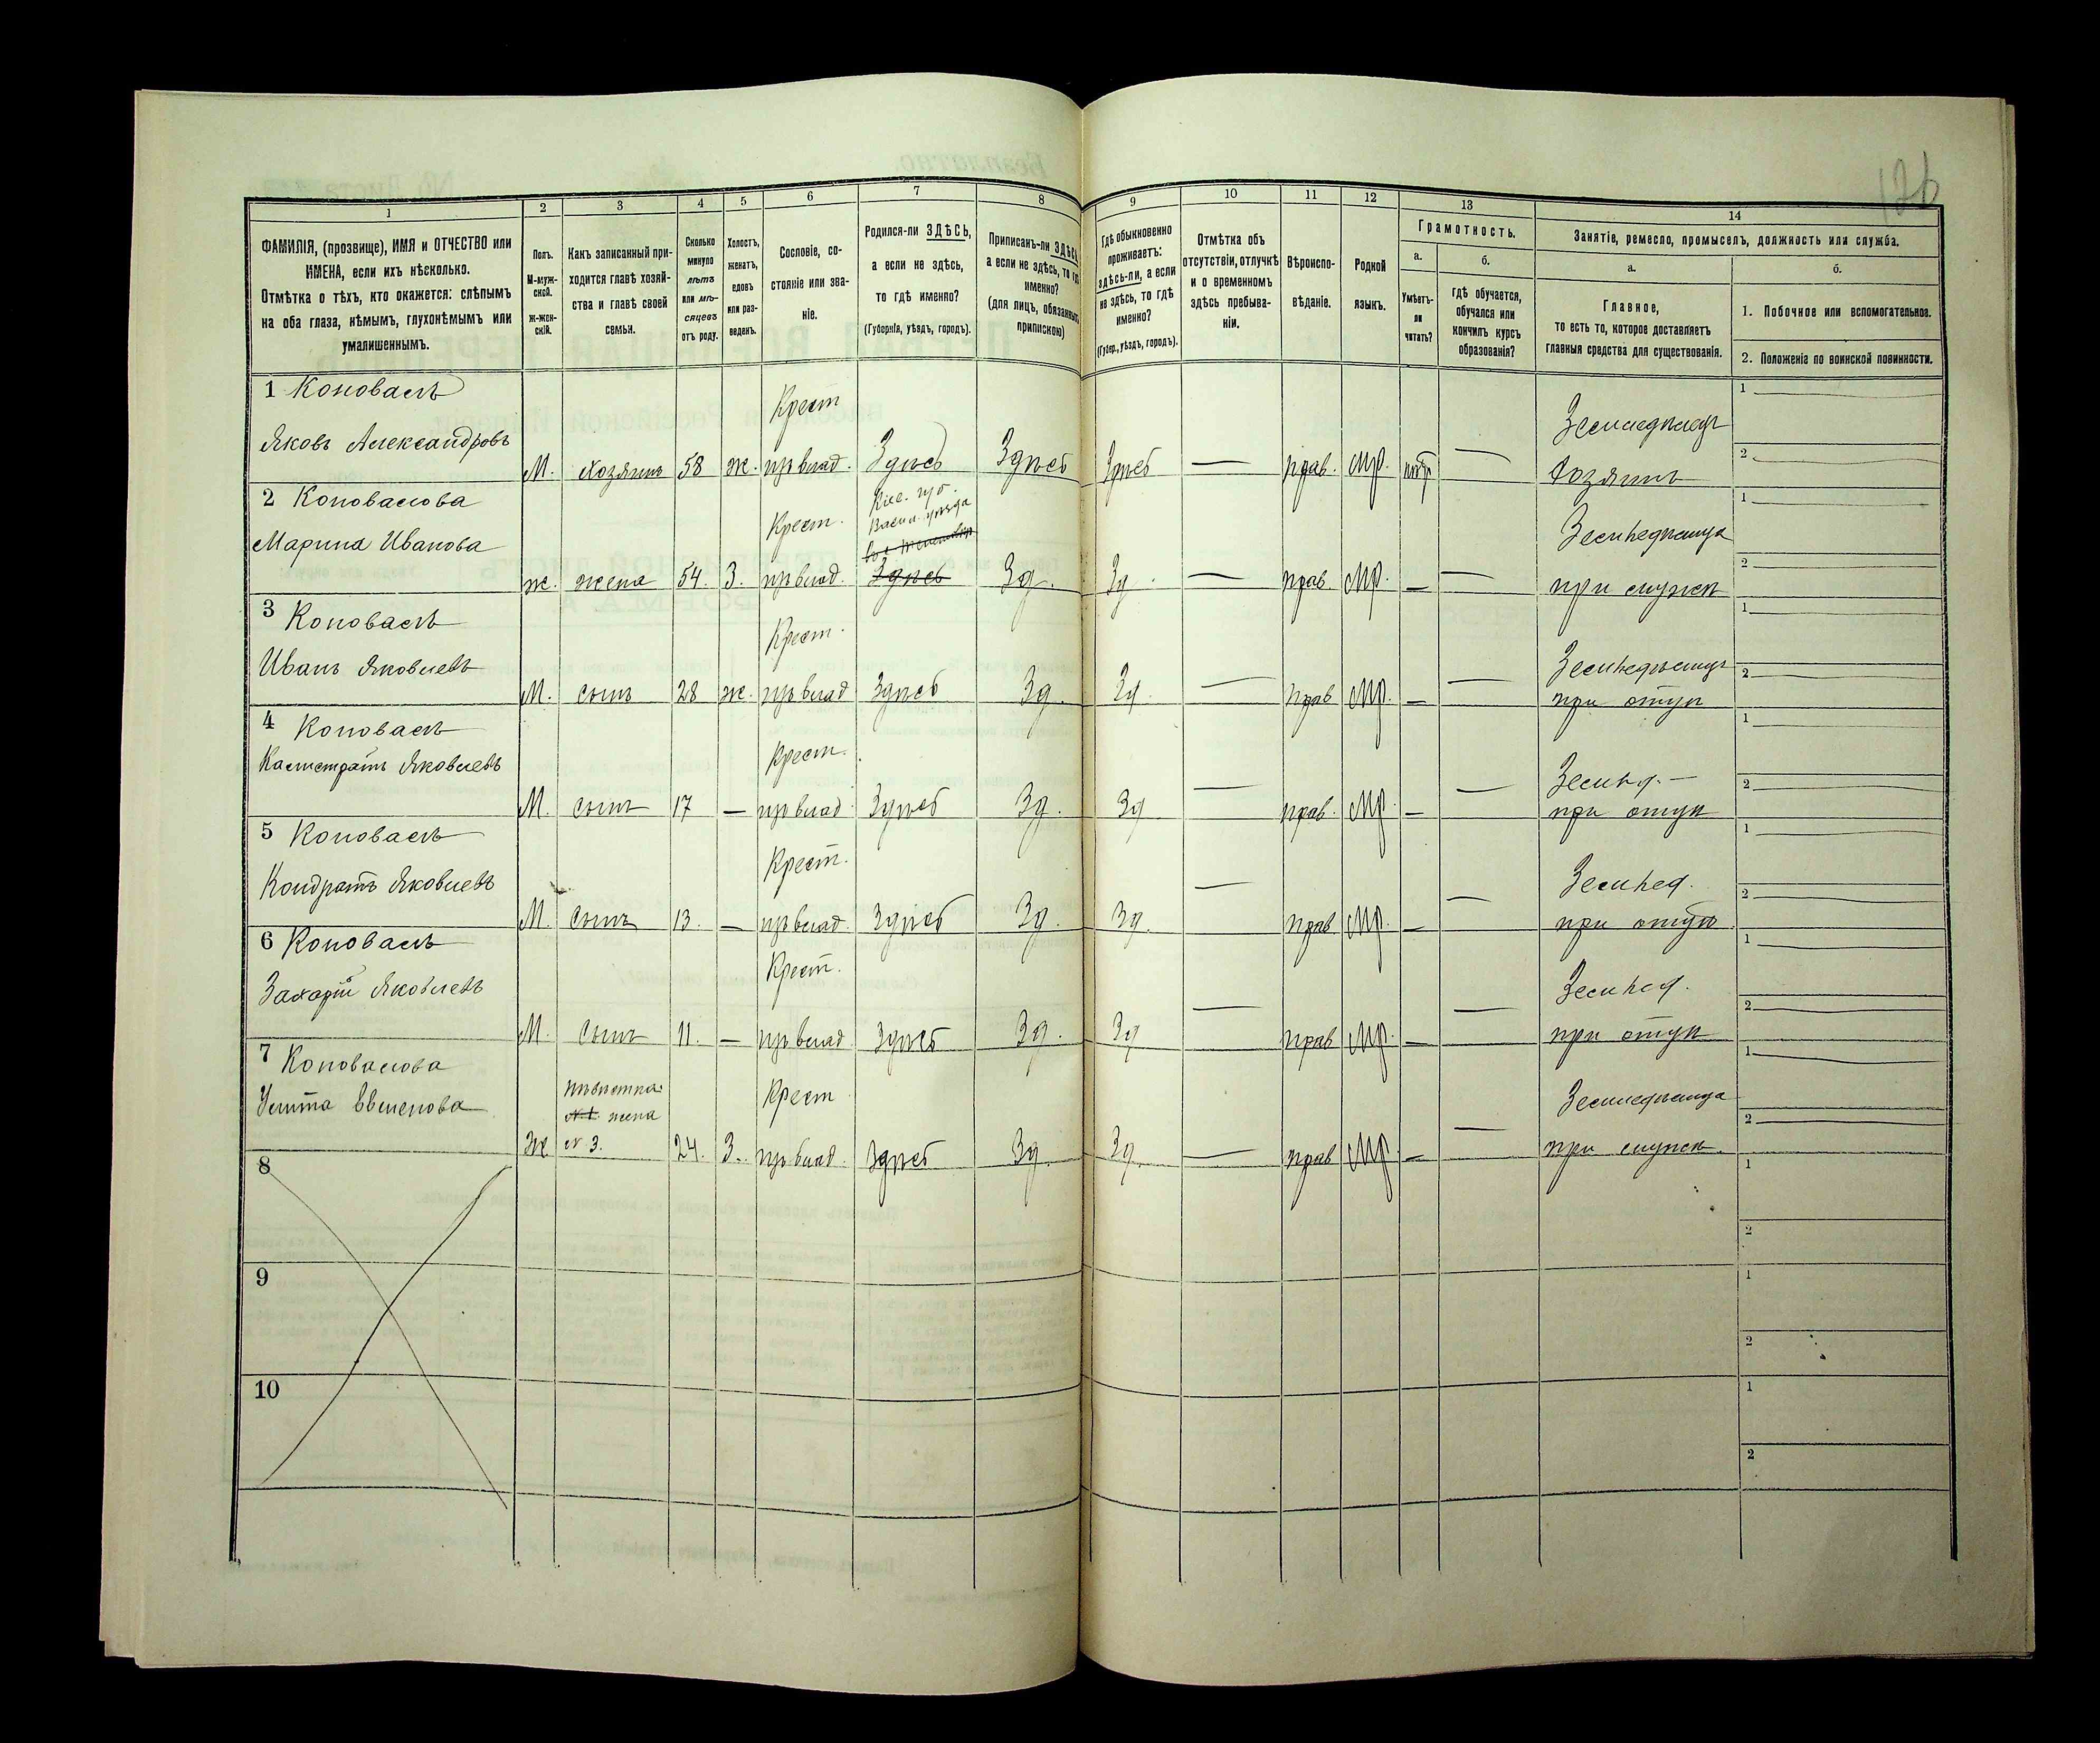 126
1
2
3
4
5
6
7
8
9
10
11
12
13
14
ФАМИЛІЯ, (прозвище), ИМЯ и ОТЧЕСТВО или
ИМЕНА, если ихъ нѣсколько.
Отмѣтка о тѣхъ, кто окажется: слѣпымъ
на оба глаза, нѣмымъ, глухонѣмымъ или
умалишеннымъ.
Полъ.
М-муж-
ской.
Ж-жен-
скій.
Какъ записанный при-
ходится главѣ хозяй-
ства и главѣ своей
семьи.
Сколько
минуло
лѣтъ
или мѣ-
сяцевъ
отъ роду.
Холостъ,
женатъ,
вдовъ
или раз-
веденъ.
Сословіе, со-
стояніе или зва-
ніе.
Родился-ли ЗДѢСЬ,
а если не здѣсь,
то гдѣ именно?
(Губернія, уѣздъ, городъ).
Приписанъ-ли ЗДѢСЬ,
а если не здѣсь, то гдѣ
именно?
(для лицъ, обязанныхъ
припискою)
Гдѣ обыкновенно
проживаетъ:
здѣсь-ли, а если
не здѣсь, то гдѣ
именно?
(Губер., уѣздъ, городъ).
Отмѣтка объ
отсутствіи, отлучкѣ
и о временномъ
здѣсь пребыва-
ніи.
Вѣроиспо-
вѣданіе.
Родной
языкъ.
Грамотность.
а.
Умѣетъ-
ли
читать?
б.
Гдѣ обучается,
обучался или
кончилъ курсъ
образованія?
Занятіе, ремесло, промыселъ, должность или служба.
а.
Главное,
то есть то, которое доставляетъ
главныя средства для существованія.
б.
1. Побочное или вспомогательное.
2. Положеніе по воинской повинности.
1 Коновалъ
Яковъ Александровъ
М. хозяинъ 58 ж.
Крест
пр. влад.
Здѣсь Здѣсь Здѣсь — прав. Мр. —
Земледѣлецъ
Хозяинъ
1
2
2 Коновалова
Марина Иванова
ж. жена 54. З.
Крест.
пр. влад.
Кіев. губ.
Васил. уѣзда
Здѣсь
Зд. Зд. — прав. Мр. — —
Землведѣлица
при мужѣ
1
2
3 Коновалъ
Иванъ Яковлевъ
М. сынъ 28 ж.
Крест.
пр. влад
Здѣсь Зд. Зд. — прав Мр. — —
Землведѣлецъ
при отцѣ
1
2
4 Коновалъ
Калистратъ Яковлевъ
М. сынъ 17 —
Крест.
пр. влад
Здѣсь Зд. Зд — прав. Мр. — —
при отцѣ
1
2
5 Коновалъ
Кондратъ Яковлевъ
М. Сынъ 13. —
Крест.
пр. влад.
Здѣсь Зд. Зд. — прав Мр. — —
при отцѣ
1
2
6 Коновалъ
Захарій Яковлевъ
М. Сынъ 11. —
Крест.
пр. влад
Здѣсь Зд. Зд — прав Мр. — —
при отцѣ
1
2
7 Коновалова
невѣстка
№ 1. жена
№ 3.
Ж 24. З.
Крест
пр. влад.
Здѣсь Зд. Зд. — прав Мр. — —
Земледѣлица
при мужѣ.
1
2
8
1
2
9
1
2
10
1
2